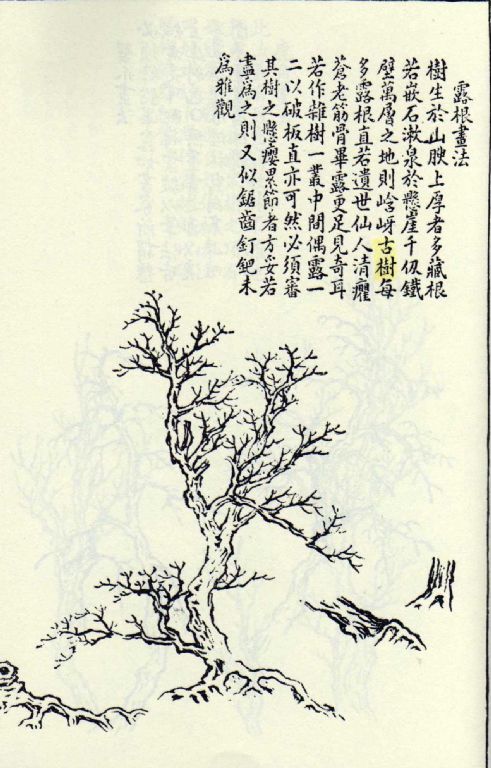 露根畫法
樹生於山腴土厚者多藏根
若嵌石漱泉於懸崖千仞鐵
壁萬層之地則峆岈古樹每
多露根直若遺世仙人清癯
蒼老筋骨畢露更足見奇耳
若作雜樹一叢中間偶露一
二以破板直亦可然必須審
其樹之懸癭累節者方妥若
盡為之則又似鋸齒釘鈀未
為雅觀